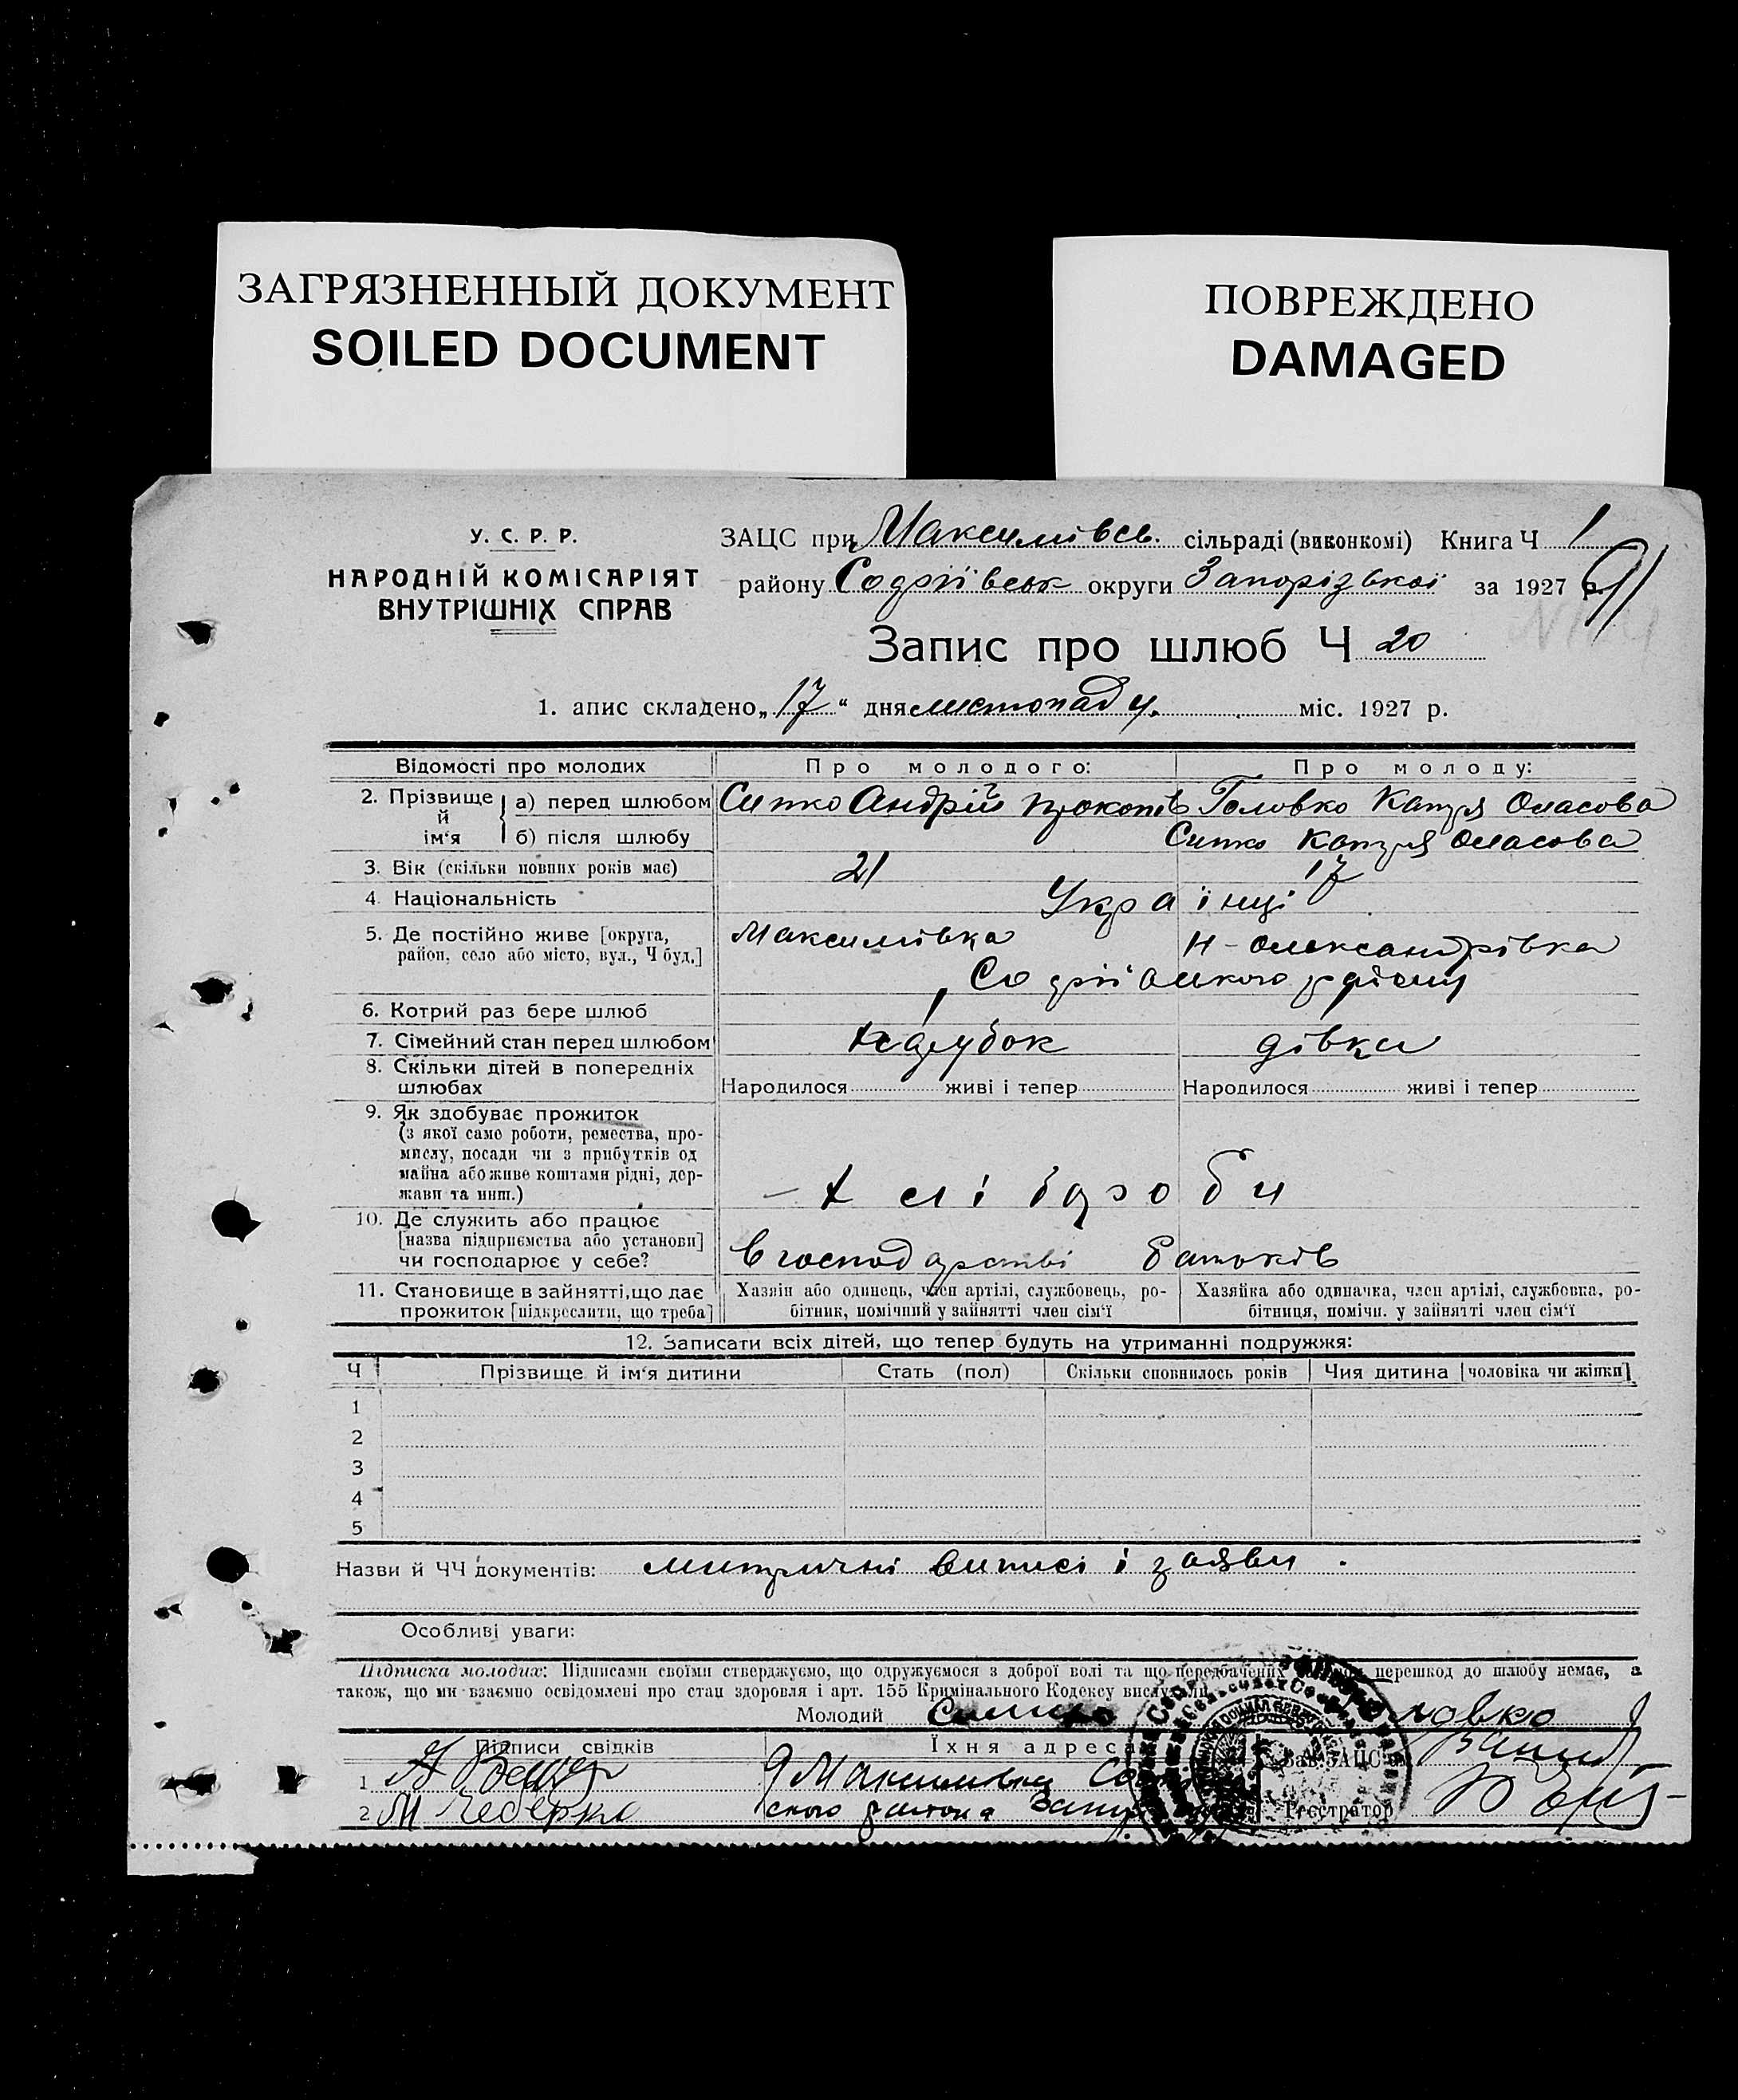 ЗАГРЯЗНЕННЫЙ ДОКУМЕНТ
SOILED DOCUMENT
ПОВРЕЖДЕНО
DAMAGED
У. С. Р. Р.
НАРОДНІЙ КОМІСАРІЯТ
ВНУТРІШНІХ СПРАВ
ЗАЦС при Максимівсь. сільраді (виконкомі) Книга Ч 1
району Софіївськ округи Запорізької за 1927 р. 91
Запис про шлюб Ч 20
1. апис складено „17“ дня листопаду. міс. 1927 р.
Відомості про молодих Про молодого: Про молоду:
2. Прізвище й ім‘я а) перед шлюбом Сипко Андрій Прокопів Головко Катря Оласова
б) після шлюбу Сипко Катря Оласова
3. Вік (скільки повних років має) 21 17
4. Національність Українці
5. Де постійно живе [округа, район, село або місто, вул., Ч буд.] Максимівка Н-Олександрівка
Софіївського району
6. Котрий раз бере шлюб 1
7. Сімейний стан перед шлюбом парубок дівка
8. Скільки дітей в попередніх шлюбах Народилося живі і тепер Народилося живі і тепер
9. Як здобуває прожиток
(з якої саме роботи, ремества, про-
мислу, посади чи з прибутків од
майна або живе коштами рідні, дер-
жави та инш.) хліборо би
10. Де служить або працює
[назва підприємства або установи]
чи господарює у себе? в господарстві батьків
11. Становище в зайнятті, що дає
прожиток [підкреслити, що треба]
Хазяїн або одинець, член артілі, службовець, ро-
бітник, помічний у зайнятті член сім‘ї
Хазяйка або одиначка, член артілі, службовка, ро-
бітниця, помічн. у зайнятті член сім‘ї
12. Записати всіх дітей, що тепер будуть на утриманні подружжя:
Ч Прізвище й ім‘я дитини Стать (пол) Скільки сповнилось років Чия дитина [чоловіка чи жінки]
1
2
3
4
5
Назви й ЧЧ документів: митричні виписі і заяви.
Особливі уваги:
Підписка молодих: Підписами своїми стверджуємо, що одружуємося з доброї волі та що передбачених перешкод до шлюбу немає, а
також, що ми взаємно освідомлені про стан здоровля і арт. 155 Кримінального Кодексу вислухали.
Молодий Сипко
Підписи свідків Їхня адреса
Зав. ЗАЦС
1
2 М Чеберко
Реєстратор